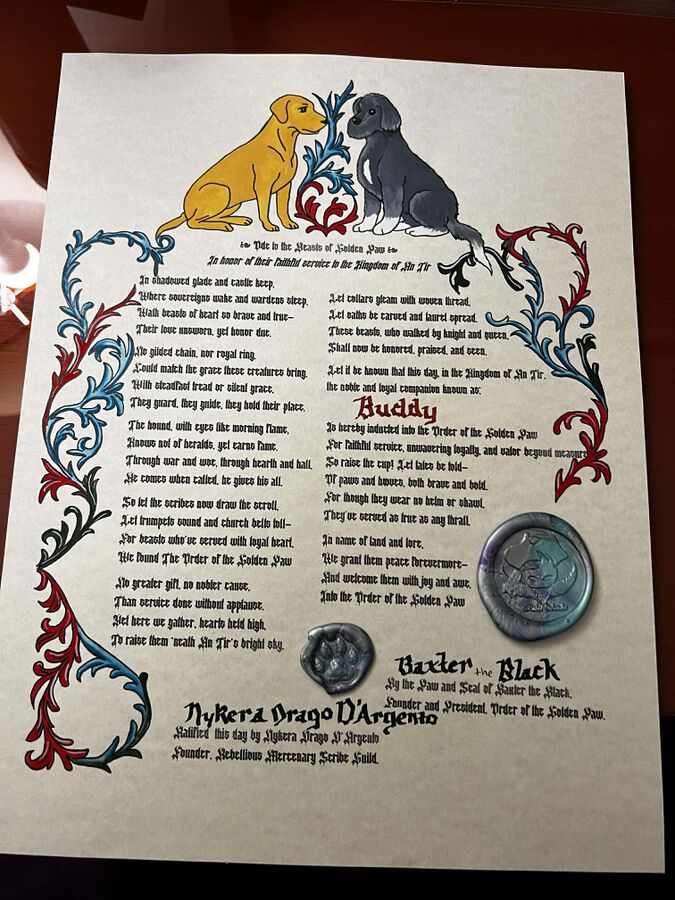 Ode to the Beasts of Golden Paw
In honor of their faithful service to the Kingdom of An Tir
In shadowed glade and castle keep,
Where sovereigns wake and wardens sleep,
Walk beasts of heart so brave and true—
Their love unsworn, yet honor due.
No gilded chain, nor royal ring,
Could match the grace these creatures bring.
With steadfast tread or silent grace,
They guard, they guide, they hold their place.
The hound, with eyes like morning flame,
Knows not of heralds, yet earns fame.
Through war and woe, through hearth and hall,
He comes when called, he gives his all.
So let the scribes now draw the scroll,
Let trumpets sound and church bells toll—
For beasts who've served with loyal heart,
We found The Order of the Golden Paw
No greater gift, no nobler cause,
Than service done without applause.
Yet here we gather, hearts held high,
To raise them 'neath An Tir's bright sky.
Let collars gleam with woven thread,
Let oaths be carved and laurel spread.
These beasts, who walked by knight and queen,
Shall now be honored, praised, and seen.
Let it be known that this day, in the Kingdom of An Tir,
the noble and loyal companion known as:
Buddy
Is hereby inducted into the Order of the Golden Paw
For faithful service, unwavering loyalty, and valor beyond measure
So raise the cup! Let tales be told—
Of paws and hooves, both brave and bold.
For though they wear no helm or shawl,
They've served as true as any thrall.
In name of land and lore,
We grant them peace forevermore—
And welcome them with joy and awe,
Into the Order of the Golden Paw
Baxter the Black
By the Paw and Seal of Baxter the Black,
Founder and President, Order of the Golden Paw.
Nykera Drago D'Argento
Ratified this day by Nykera Drago D'Argento
Founder, Rebellious Mercenary Scribe Guild.